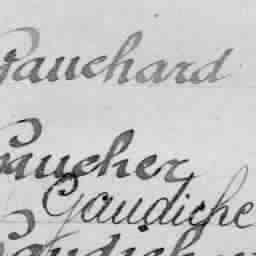 Gauchard
Gaucher
Gaudiche